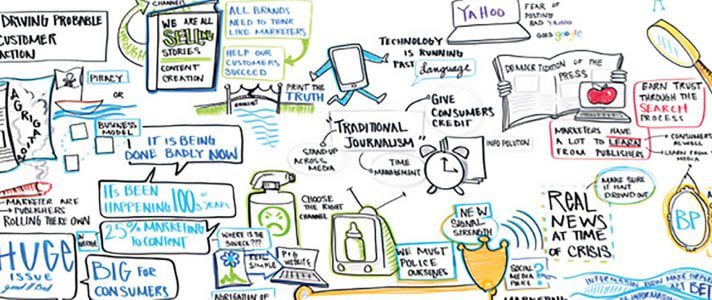 DRIVING PROBABLE
CUSTOMER
ACTION
CHANNELS
THROUGH
WE ARE ALL
SELLING
STORIES
CONTENT
CREATION
ALL BRANDS
NEED TO THINK
LIKE MARKETERS
HELP OUR
CUSTOMERS
SUCCEED
YAHOO
FEAR OF
POSTING
BAD YAHOO
GOOD google
TECHNOLOGY
IS RUNNING
PAST
Language
PIRACY
OR
BUSINESS
MODEL
PRINT THE
TRUTH
DEMARTIZATION OF THE
PRESS
EARN TRUST
THROUGH THE
SEARCH
PROCESS
GIVE
CONSUMERS
CREDIT
"TRADITIONAL
JOURNALISM"
STAND UP
ACROSS
MEDIA
TIME
MANAGEMENT
INFO POLLUTION
MARKETERS HAVE
A LOT TO LEARN
FROM PUBLISHERS
CONSUMERS
AS WELL
LEARN FROM
MEDIA
IT IS BEING
DONE BADLY NOW
IT'S BEEN
HAPPENING 100s OF YEARS
25% MARKETING
TO CONTENT
MARKETER ARE
PUBLISHERS
ROLLING THERE OWN
HUGE
ISSUE
good & Bad
BIG FOR
CONSUMERS
CHOOSE
THE RIGHT
CHANNEL
WHERE IS THE
SOURCE???
REAL
SIMPLE
P&G
WEBSITE
WE MUST
POLICE
OURSELVES
NEW
SIGNAL
STRENGTH
SOCIAL
MEDIA
HERE?
REAL
NEWS
AT TIME
OF CRISIS
MAKE SURE
IT ISNT
DROWND OUT
BP
MARKETING